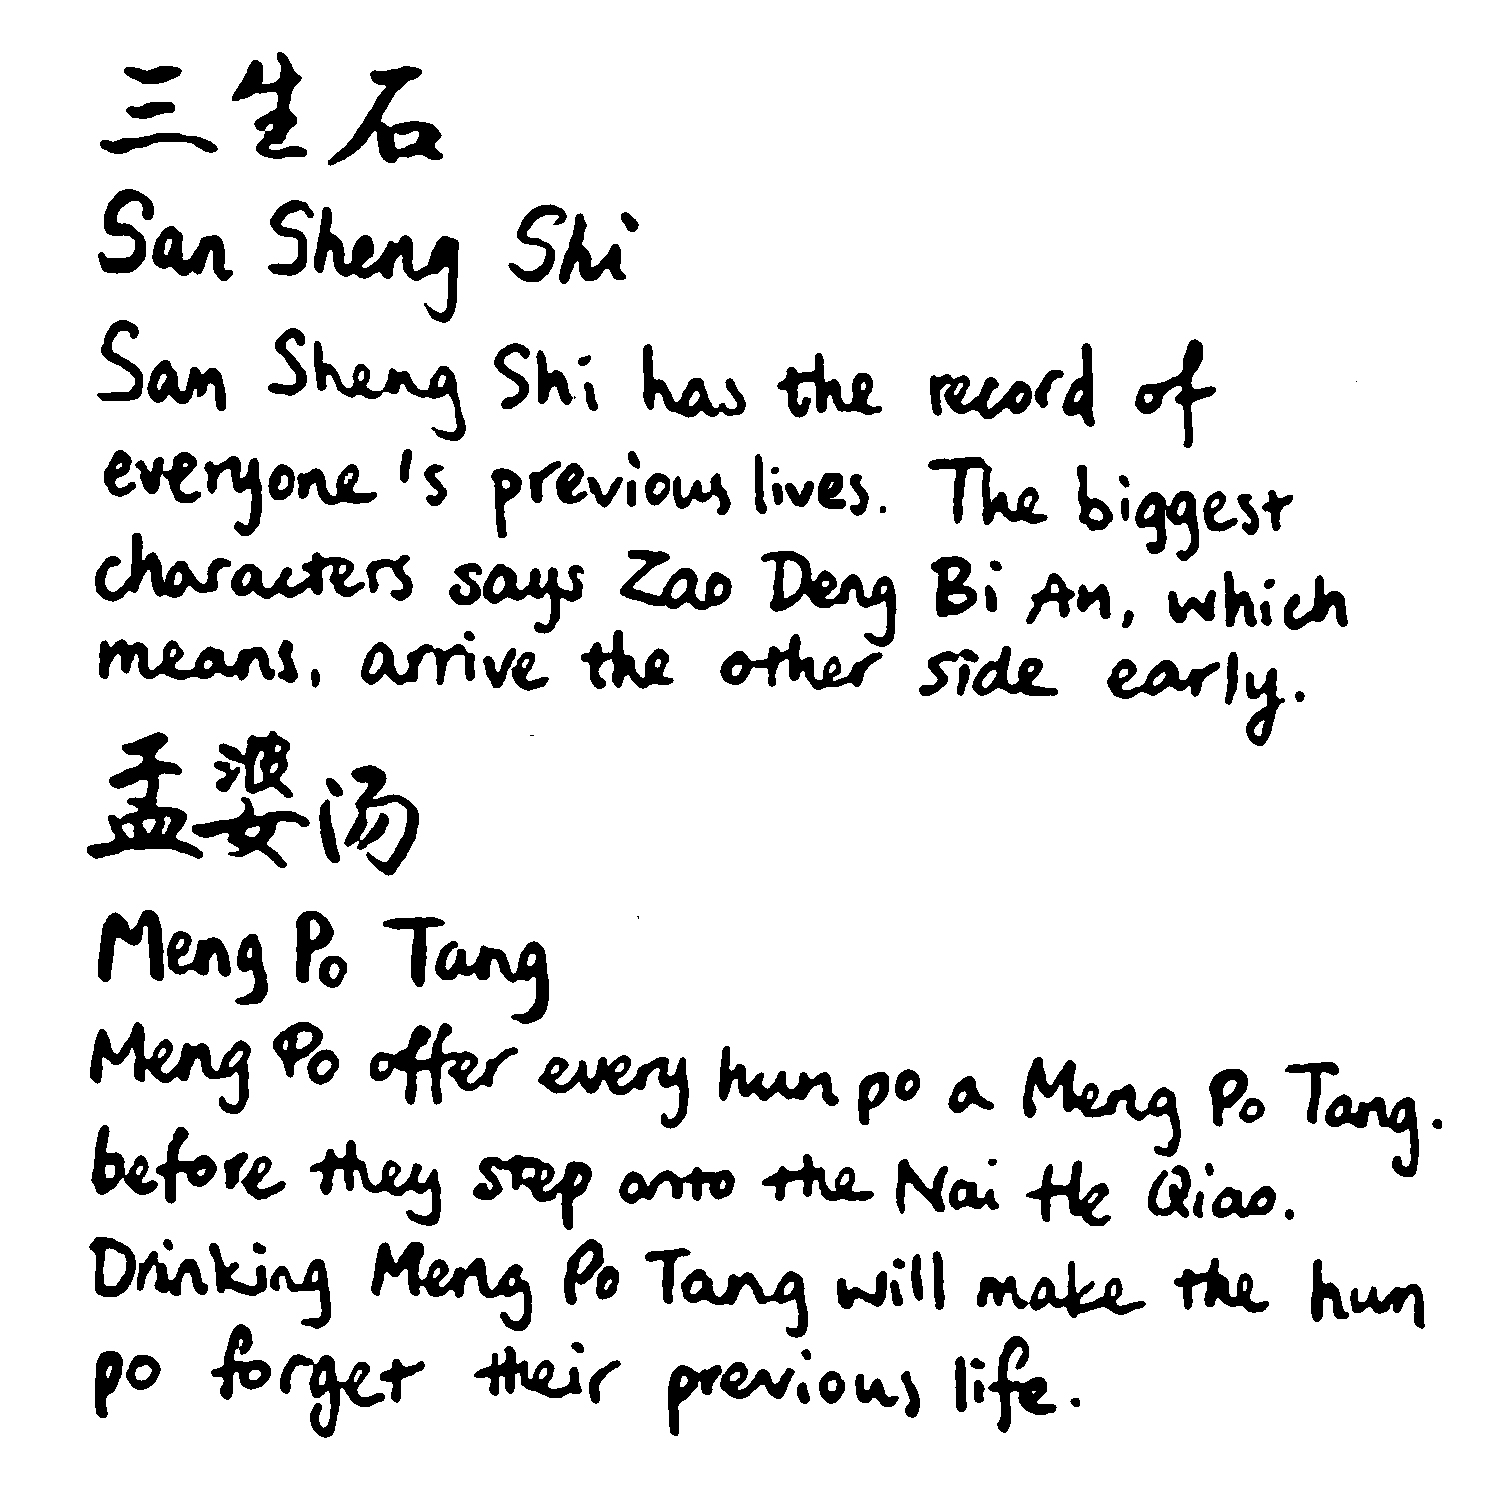 三生石
San Sheng Shi
San Sheng Shi has the record of
everyone's previous lives. The biggest
characters says Zao Deng Bi An, which
means, arrive the other side early.
孟婆汤
Meng Po Tang
Meng Po offer every hun po a Meng Po Tang.
before they step onto the Nai He Qiao.
Drinking Meng Po Tang will make the hun
po forget their previous life.